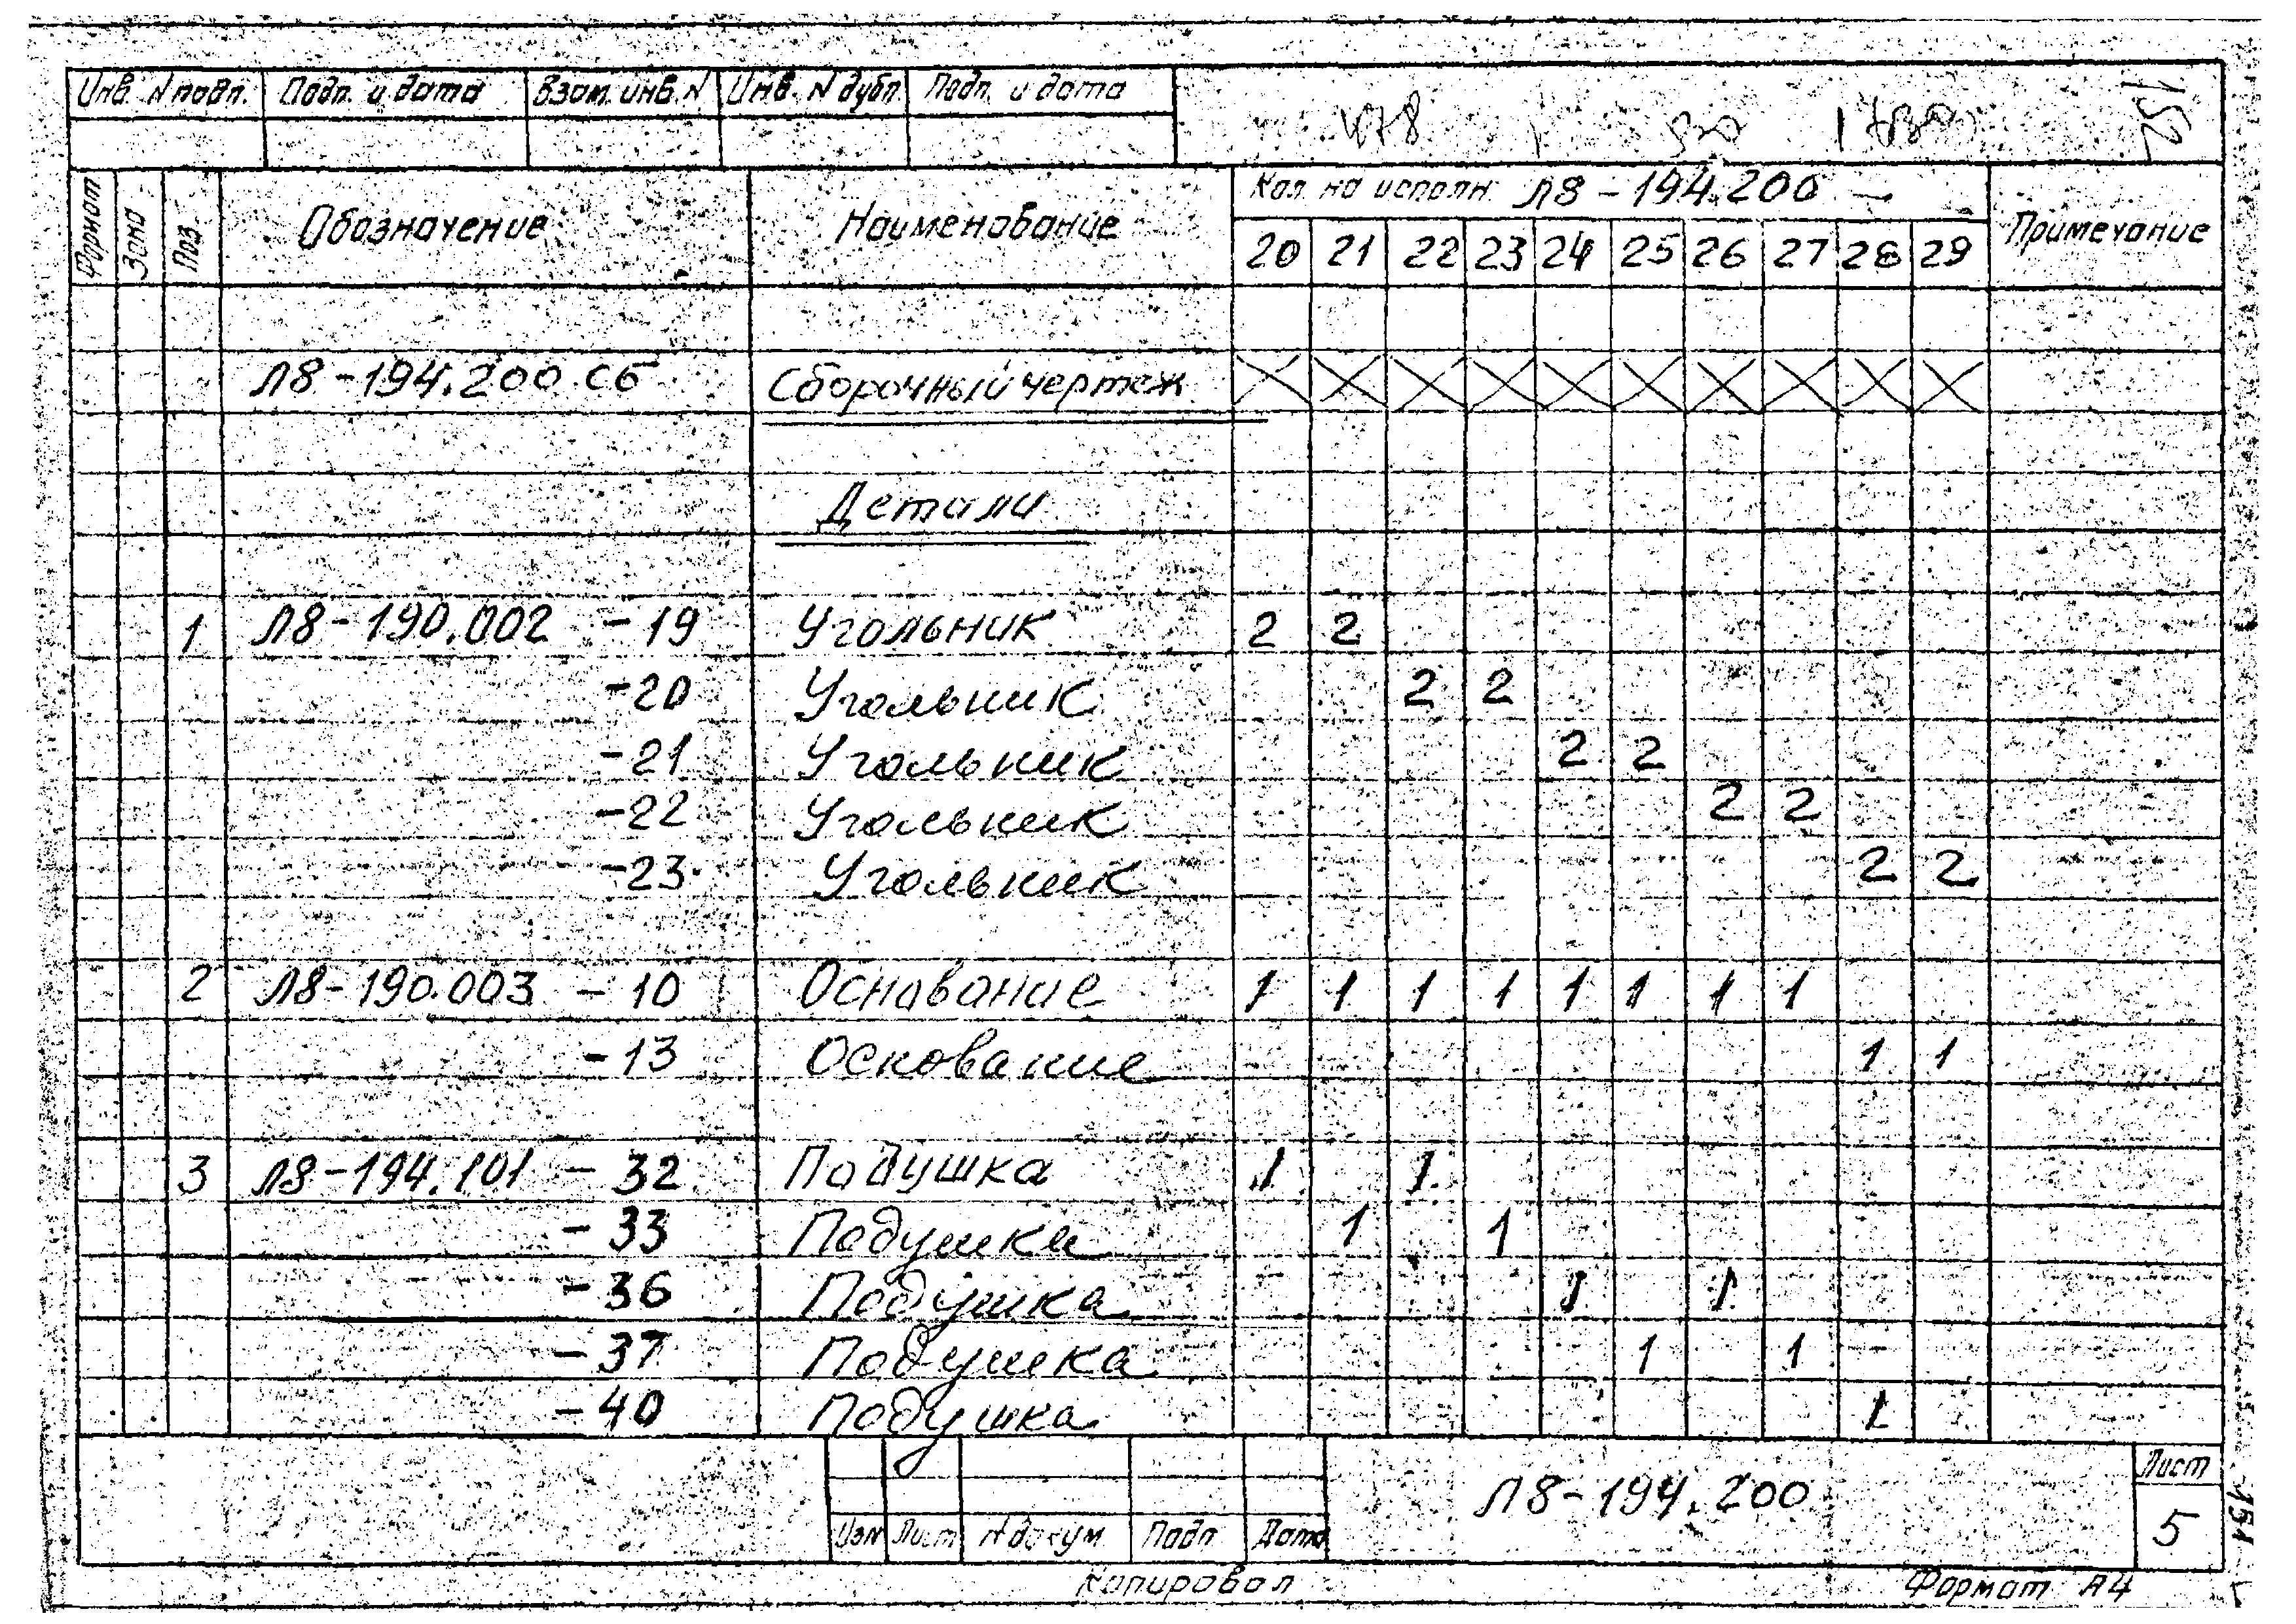 Инв. N подл. Подп. и дата Взам. инв. N Инв. N дубл. Подп. и дата
478 1780 152
Формат Зона Поз. Обозначение Наименование Кол. на исполн. Л8-194.200 - Примечание
20 21 22 23 24 25 26 27 28 29
Л8-194.200 СБ Сборочный чертеж X X X X X X X X X X
Детали
1 Л8-190.002 -19 Угольник 2 2
-20 Угольник 2 2
-21 Угольник 2 2
-22 Угольник 2 2
-23 Угольник 2 2
2 Л8-190.003 -10 Основание 1 1 1 1 1 1 1 1
-13 Основание 1 1
3 Л8-194.101 -32 Подушка 1 1
-33 Подушка 1 1
-36 Подушка 1 1
-37 Подушка 1 1
-40 Подушка 1
Л8-194.200 Лист
Изм Лист N докум Подп Дата 5
151
Копировал Формат А4